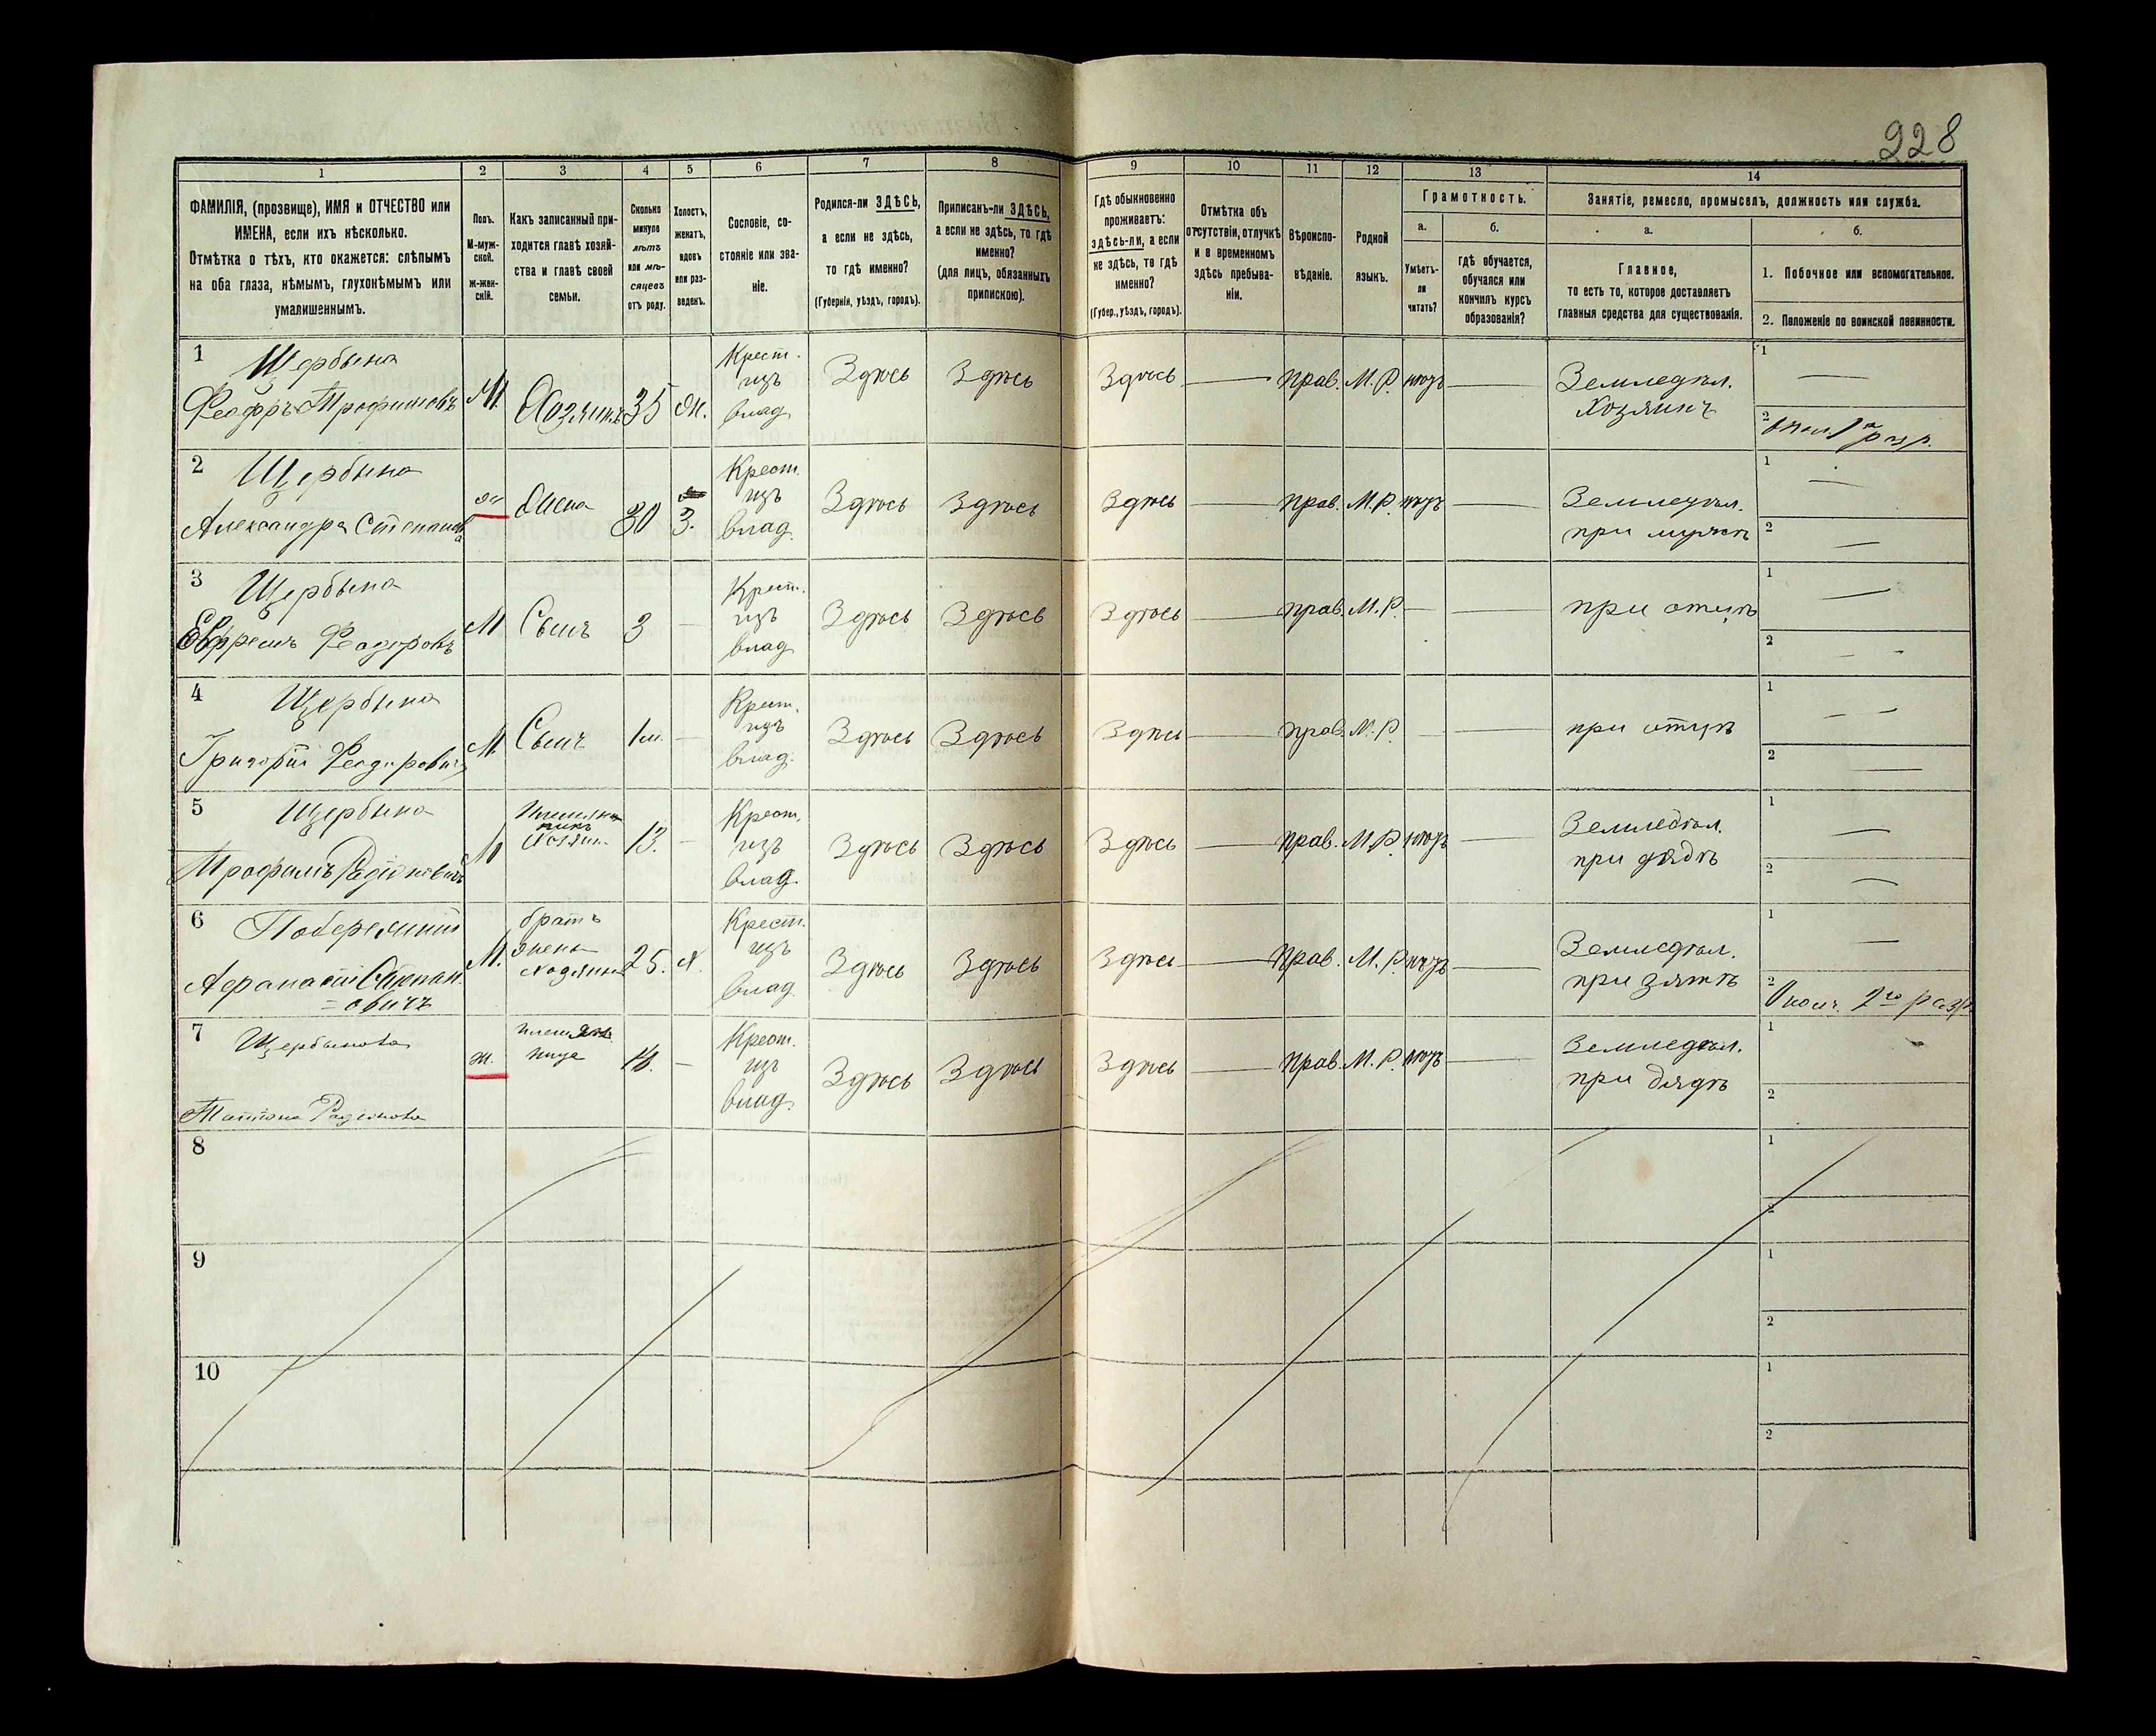 228
1
2
3
4
5
6
7
8
9
10
11
12
13
14
ФАМИЛІЯ, (прозвище), ИМЯ и ОТЧЕСТВО или
ИМЕНА, если ихъ нѣсколько.
Отмѣтка о тѣхъ, кто окажется: слѣпымъ
на оба глаза, нѣмымъ, глухонѣмымъ или
умалишеннымъ.
Полъ.
М-муж-
ской.
ж-жен-
скій.
Какъ записанный при-
ходится главѣ хозяй-
ства и главѣ своей
семьи.
Сколько
минуло
лѣтъ
или мѣ-
сяцевъ
отъ роду.
Холостъ,
женатъ,
вдовъ
или раз-
веденъ.
Сословіе, со-
стояніе или зва-
ніе.
Родился-ли ЗДѢСЬ,
а если не здѣсь,
то гдѣ именно?
(Губернія, уѣздъ, городъ).
Приписанъ-ли ЗДѢСЬ,
а если не здѣсь, то гдѣ
именно?
(для лицъ, обязанныхъ
припискою).
Гдѣ обыкновенно
проживаетъ:
здѣсь-ли, а если
не здѣсь, то гдѣ
именно?
(Губер., уѣздъ, городъ).
Отмѣтка объ
отсутствіи, отлучкѣ
и в временномъ
здѣсь пребыва-
ніи.
Вѣроиспо-
вѣданіе.
Родной
языкъ.
Грамотность.
а.
б.
Умѣетъ-
ли
читать?
гдѣ обучается,
обучался или
кончилъ курсъ
образованія?
Занятіе, ремесло, промыселъ, должность или служба.
а.
б.
Главное,
то есть то, которое доставляетъ
главныя средства для существованія.
1. Побочное или вспомогательное.
2. Положеніе по воинской повинности.
1
Щербына
Феодоръ Трофимовъ
М.
Хозяинъ
35
Ж.
Крест.
изъ
влад.
Здѣсь
Здѣсь
Здѣсь
Прав.
М. Р.
нѣтъ
Земледѣл.
Хозяинъ
1
2
разр.
2
Щербына
Александра Степанова
ж
Жена
30
З.
Крест.
изъ
влад.
Здѣсь
Здѣсь
Здѣсь
Прав.
М. Р.
нѣтъ
Земледѣл.
при мужѣ
1
2
3
Щербына
Ефремъ Феодоровъ
М
Сынъ
3
Крест.
изъ
влад.
Здѣсь
Здѣсь
Здѣсь
прав.
М. Р.
при отцѣ
1
2
4
Щербына
Григорій Феодоровичъ
М.
Сынъ
1 м.
Крест.
изъ
влад.
Здѣсь
Здѣсь
Здѣсь
прав.
М. Р.
при отцѣ
1
2
5
Щербына
Трофимъ Радіоновичъ
М
Хозяин.
13.
Крест.
изъ
влад.
Здѣсь
Здѣсь
Здѣсь
прав.
М. Р.
нѣтъ
Земледѣл.
при дядѣ
1
2
6
Побережний
Афанасій Степан
=овичъ
М.
братъ
жены
хозяина
25.
Х.
Крест.
изъ
влад
Здѣсь
Здѣсь
Здѣсь
Прав.
М. Р.
нѣтъ
Земледѣл.
при зятѣ
1
2
Ополч. 2го разр.
7
Щербынова
Татіана Радіонова
ж.
племян
ница
Крест.
изъ
влад.
Здѣсь
Здѣсь
Здѣсь
Прав.
М. Р.
нѣтъ
Земледѣл.
при дядѣ
1
2
8
1
2
9
1
2
10
1
2